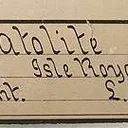 atolite
Isle Roya
nt. L.